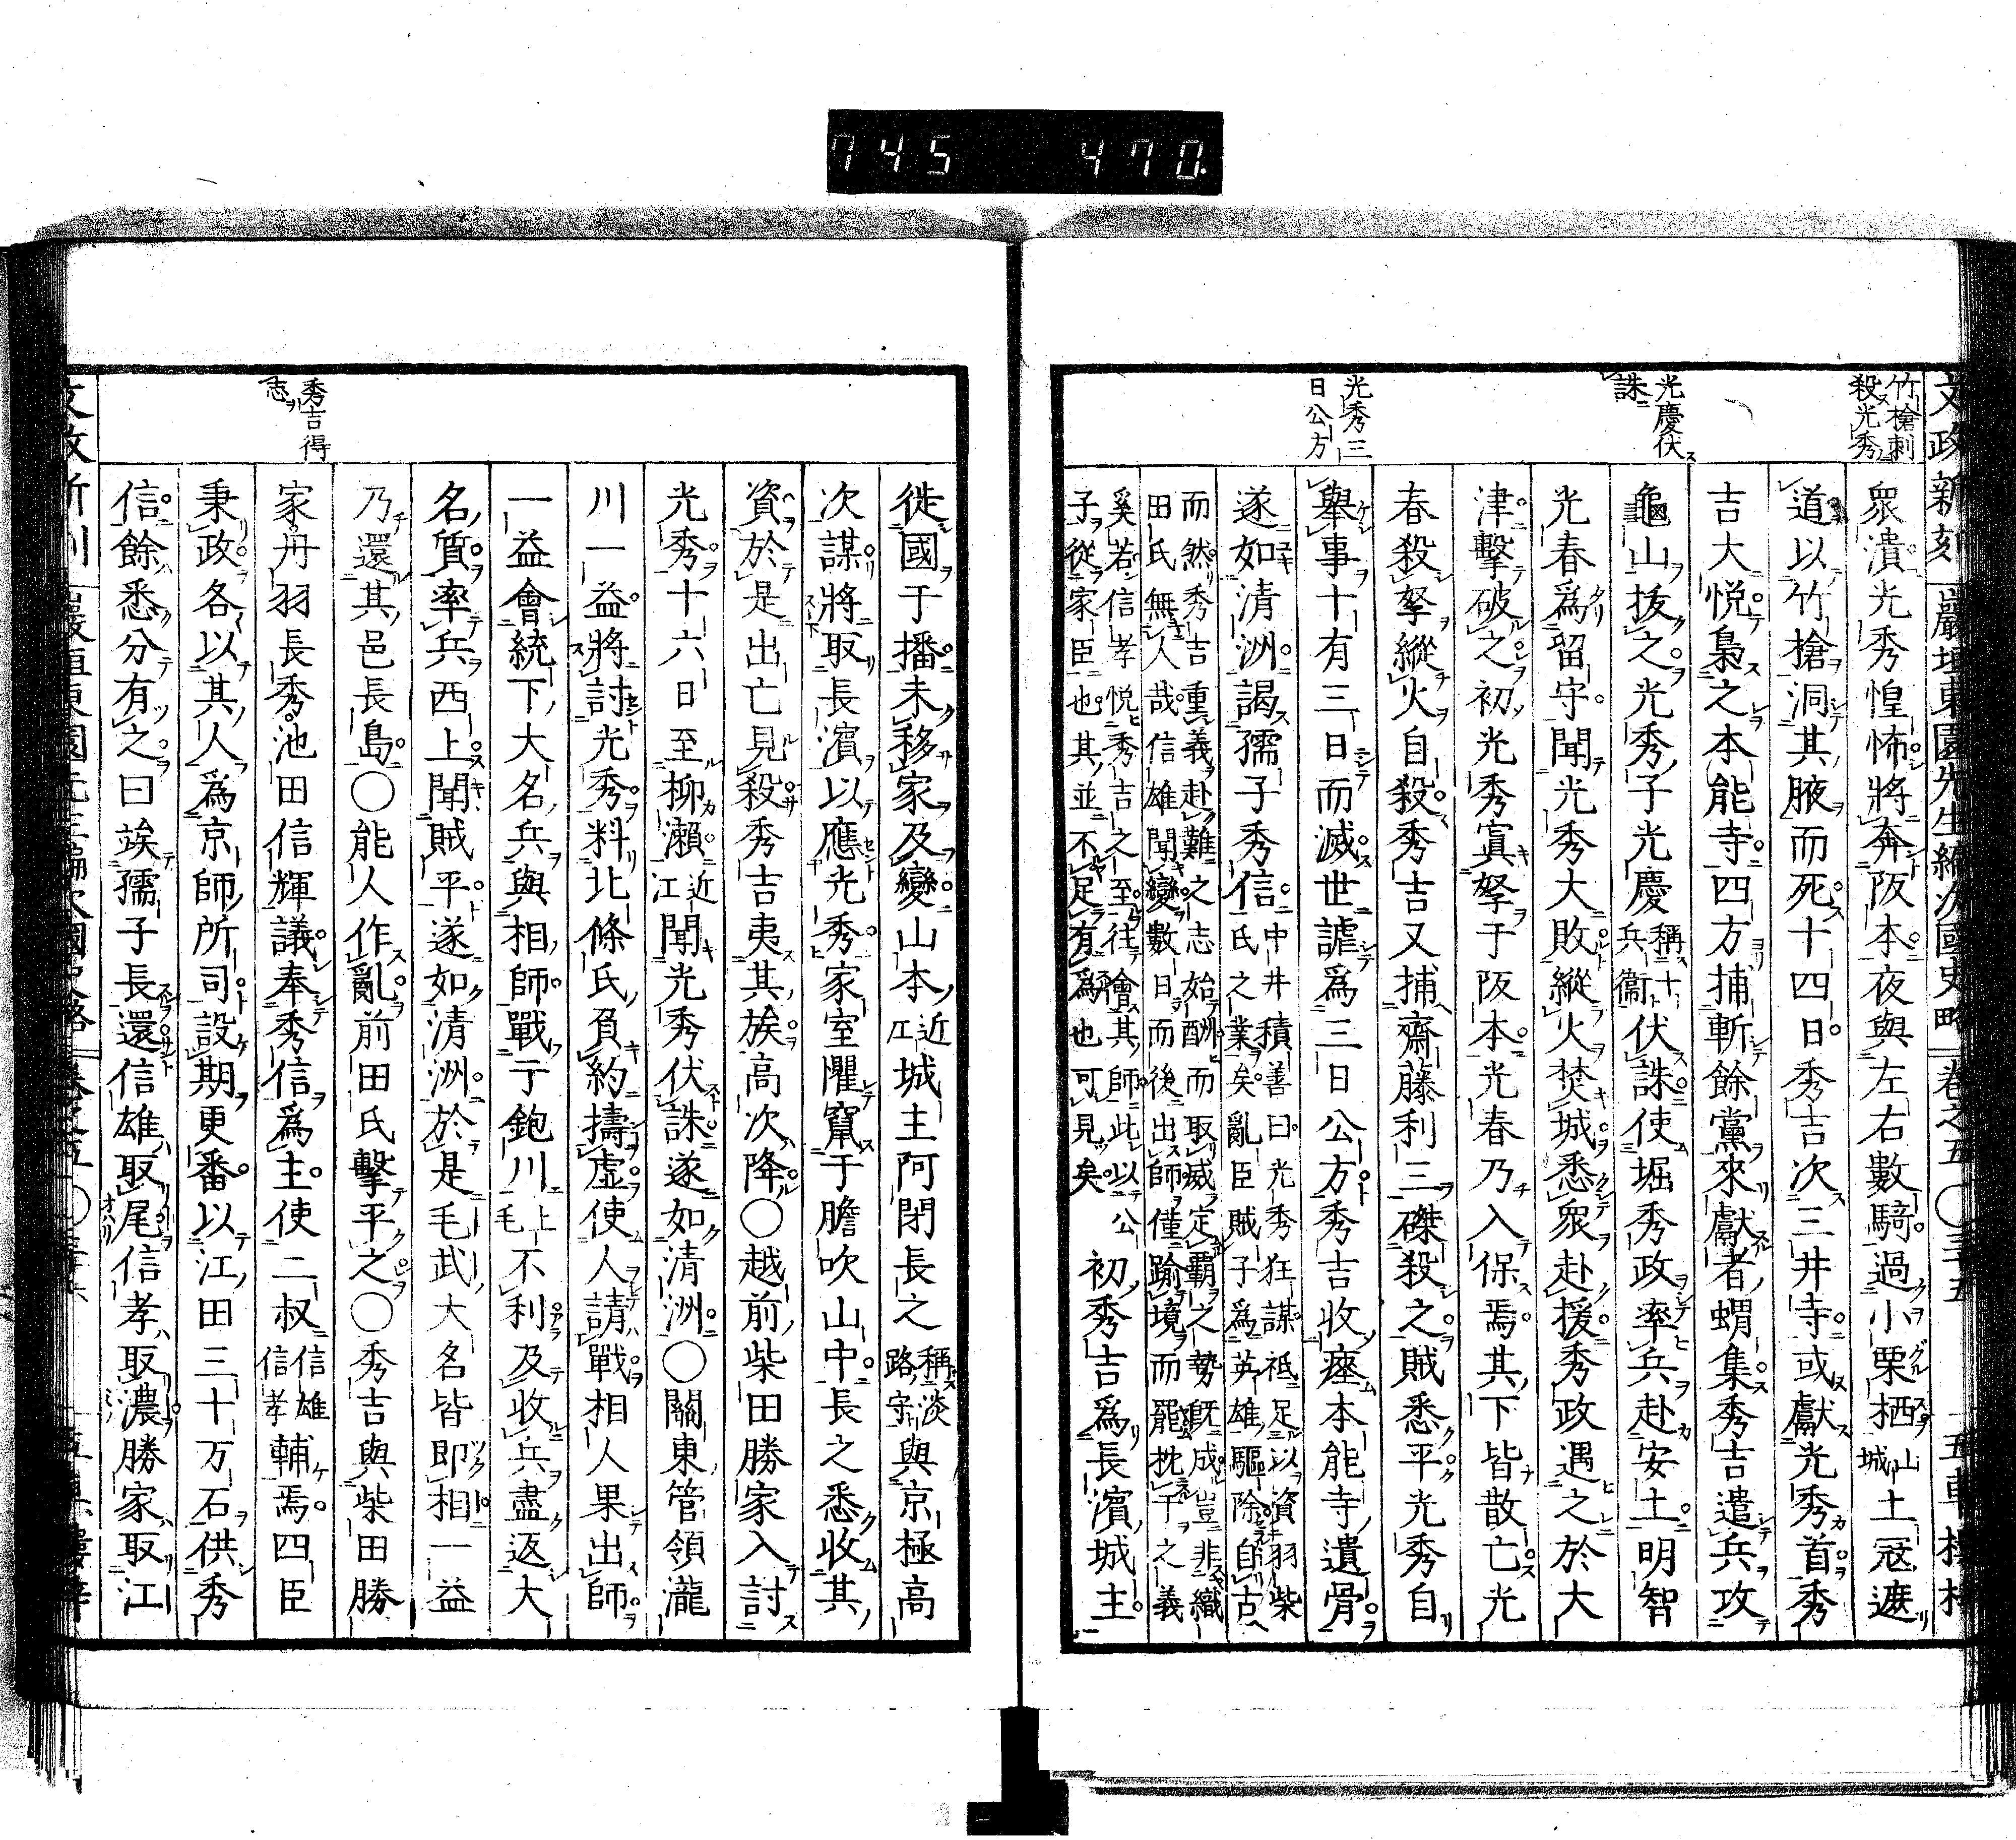 745 470.
文政新刻 巖垣東園先生編次國史略 卷之五 〇三十五 五車樓梓
竹槍刺
殺光秀
光慶伏
誅
光秀三
日公方
衆潰光秀惶怖將奔阪本夜與左右數騎過小栗栖山城土冦遮
道以竹槍洞其腋而死十四日秀吉次三井寺或獻光秀首秀
吉大悦梟之本能寺四方捕斬餘黨來獻者蝟集秀吉遣兵攻
龜山拔之光秀子光慶稱十兵衞伏誅使堀秀政率兵赴安土明智
光春爲留守聞光秀大敗縱火焚城悉衆赴援秀政遇之於大
津擊破之初光秀寘孥于阪本光春乃入保焉其下皆散亡光
春殺孥縱火自殺秀吉又捕齋藤利三磔殺之賊悉平光秀自
舉事十有三日而滅世謔爲三日公方秀吉收瘞本能寺遺骨
遂如清洲謁孺子秀信中井積善曰光秀狂謀祇足以資羽柴
氏之業矣亂臣賊子爲英雄驅除自古
而然秀吉重義赴難之志始酬而取威定霸之勢既成豈非織
田氏無人哉信雄聞變數日而後出師僅踰境而罷枕子之義
奚若信孝悦秀吉之至往會其師此以公
子從家臣也其並不足有爲也可見矣初秀吉爲長濱城主
徙國于播未移家及變山本近江城主阿閉長之稱淡路守與京極高
次謀將取長濱以應光秀家室懼竄于膽吹山中長之悉收其
資於是出亡見殺秀吉夷其族高次降〇越前柴田勝家入討
光秀十六日至柳瀬近江聞光秀伏誅遂如清洲〇關東管領瀧
川一益將討光秀料北條氏負約擣虛使人請戰相人果出師
一益會統下大名兵與相師戰于鉋川上毛不利及收兵盡返大
名質率兵西上聞賊平遂如清洲於是毛武大名皆即相一益
乃還其邑長島〇能人作亂前田氏擊平之〇秀吉與柴田勝
家丹羽長秀池田信輝議奉秀信爲主使二叔信雄信孝輔焉四臣
秉政各以其人爲京師所司設期更番以江田三十万石供秀
信餘悉分有之曰竢孺子長還信雄取尾信孝取濃勝家取江
秀吉得
志